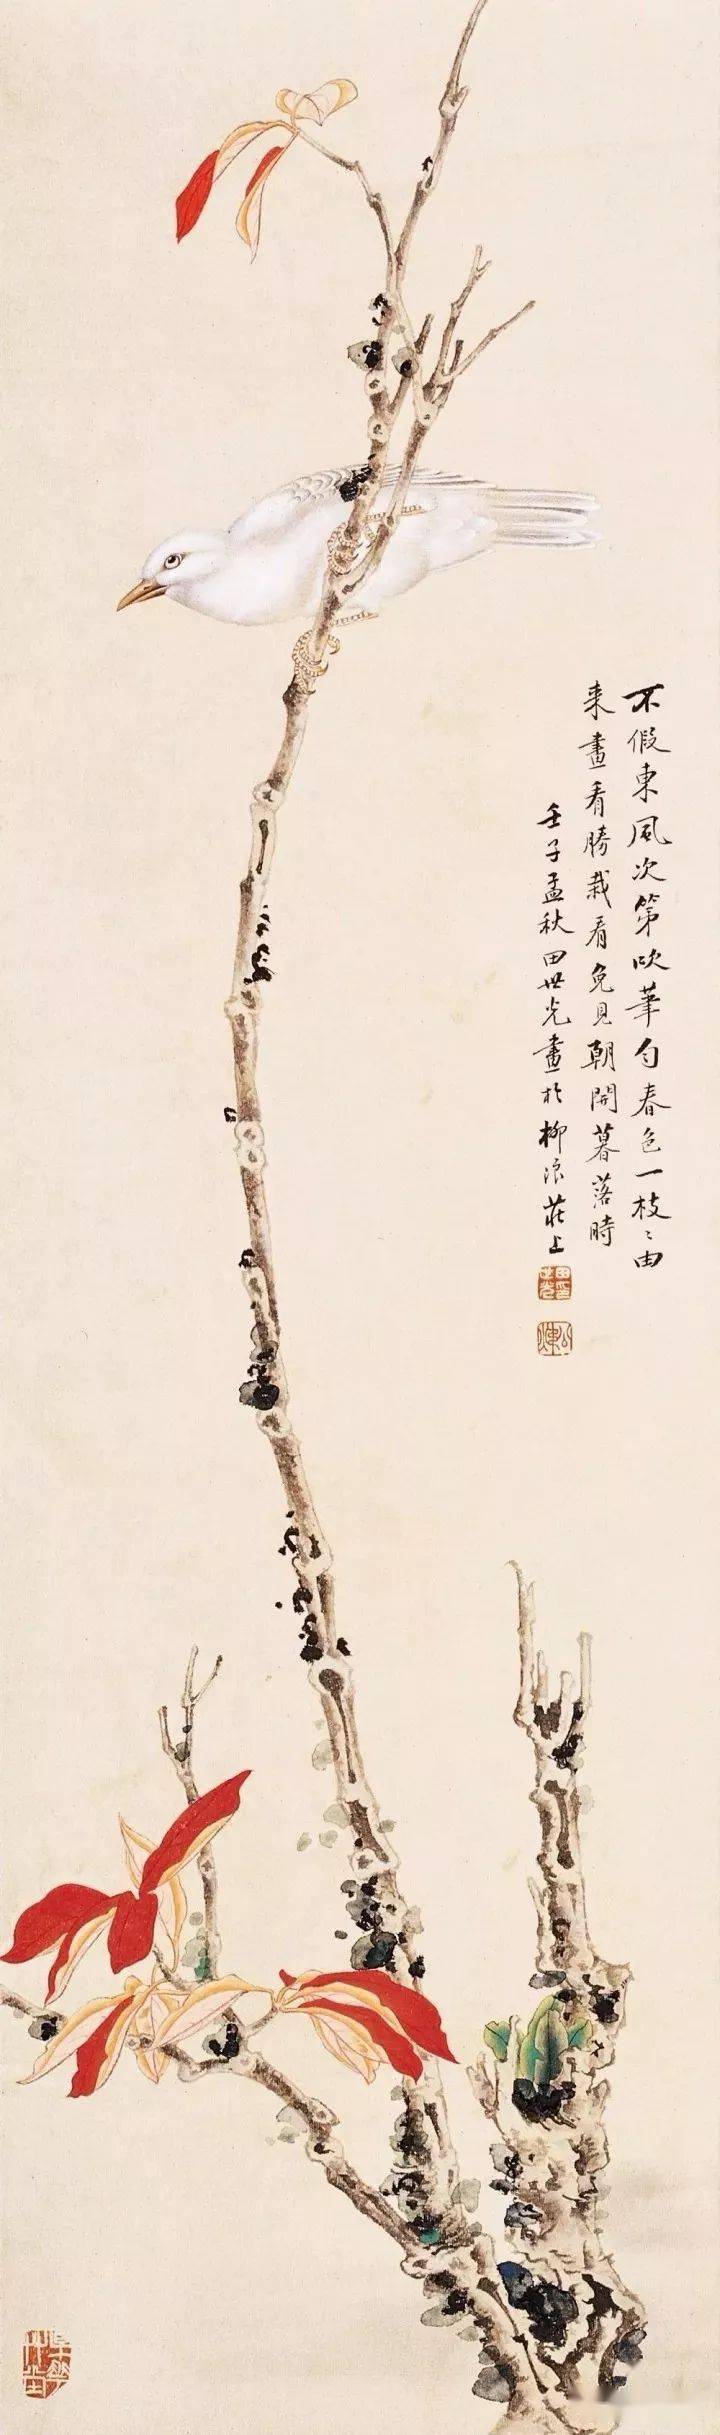 不假東風次第吹筆勻春色一枝〻由
来畫看勝栽看免見朝開暮落時
壬子孟秋田世光畫於柳浪莊上
田世光印
公煒